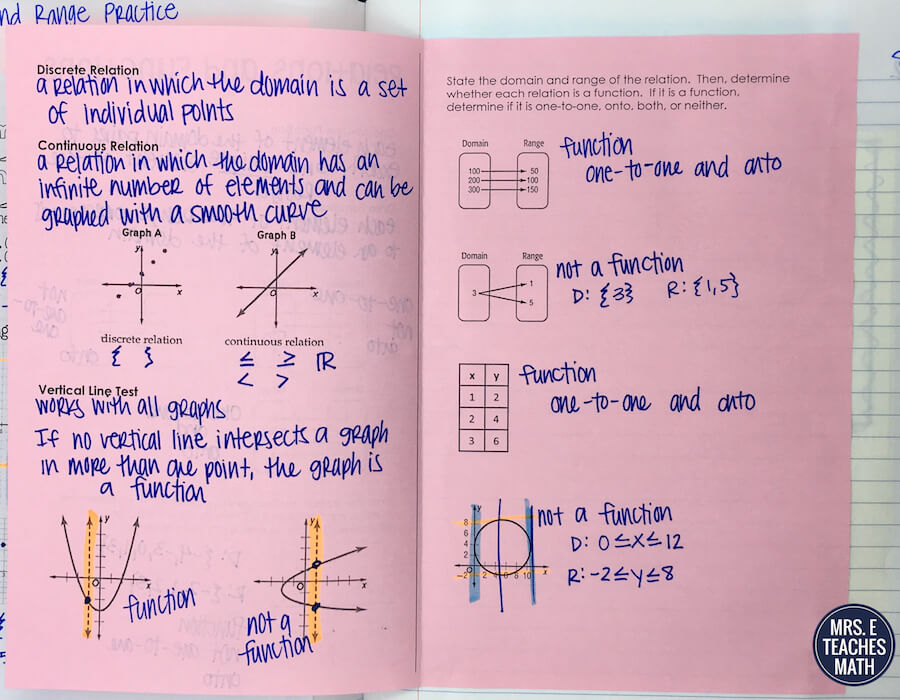 nd Range Practice
Discrete Relation
a relation in which the domain is a set
of individual points
Continuous Relation
a relation in which the domain has an
infinite number of elements and can be
graphed with a smooth curve
Graph A
Graph B
y
y
O
x
O
x
discrete relation
continuous relation
{ }
≤ ≥ ℝ
< >
Vertical Line Test
works with all graphs
If no vertical line intersects a graph
in more than one point, the graph is
a function
y
y
O
x
O
x
function
not a
function
State the domain and range of the relation. Then, determine
whether each relation is a function. If it is a function,
determine if it is one-to-one, onto, both, or neither.
Domain Range
100 50
200 100
300 150
function
one-to-one and onto
Domain Range
3
1
5
not a function
D: {3} R: {1,5}
x y
1 2
2 4
3 6
function
one-to-one and onto
y
8
6
4
2
O
-2 2 4 6 8 10 x
-2
not a function
D: 0≤x≤12
R: -2≤y≤8
MRS. E
TEACHES
MATH